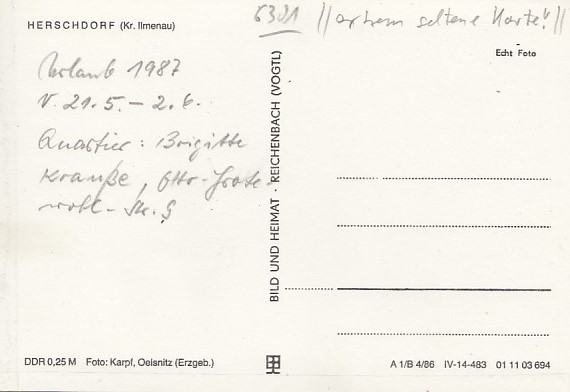 HERSCHDORF (Kr. Ilmenau)
6301 //extrem seltene Karte!//
Echt Foto
Urlaub 1987
v. 21.5. – 2.6.
Quartier: Brigitte
Krauße, Otto-Grote-
wohl-Str. 9
BILD UND HEIMAT · REICHENBACH (VOGTL)
DDR 0,25 M Foto: Karpf, Oelsnitz (Erzgeb.)
A 1/B 4/86 IV-14-483 01 11 03 694